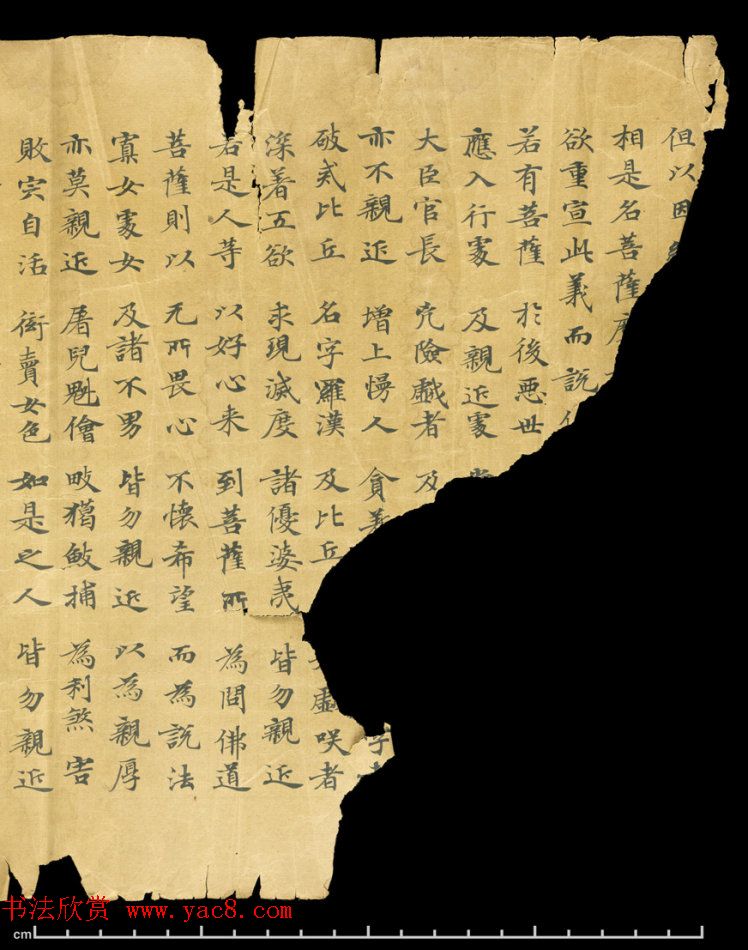 但以因
相是名菩薩摩
欲重宣此義而說
若有菩薩 於後惡世
應入行處 及親近處
大臣官長 兇險戲者 及
亦不親近 增上慢人 貪著 字
破戒比丘 名字羅漢 及比丘 戲咲者
深著五欲 求現滅度 諸優婆夷 皆勿親近
若是人等 以好心来 到菩薩所 為問佛道
菩薩則以 无所畏心 不懷希望 而為說法
寡女處女 及諸不男 皆勿親近 以為親厚
亦莫親近 屠兒魁儈 畋獦鮁捕 為利煞害
販宍自活 衒賣女色 如是之人 皆勿親近
书法欣赏 www.yac8.com
cm